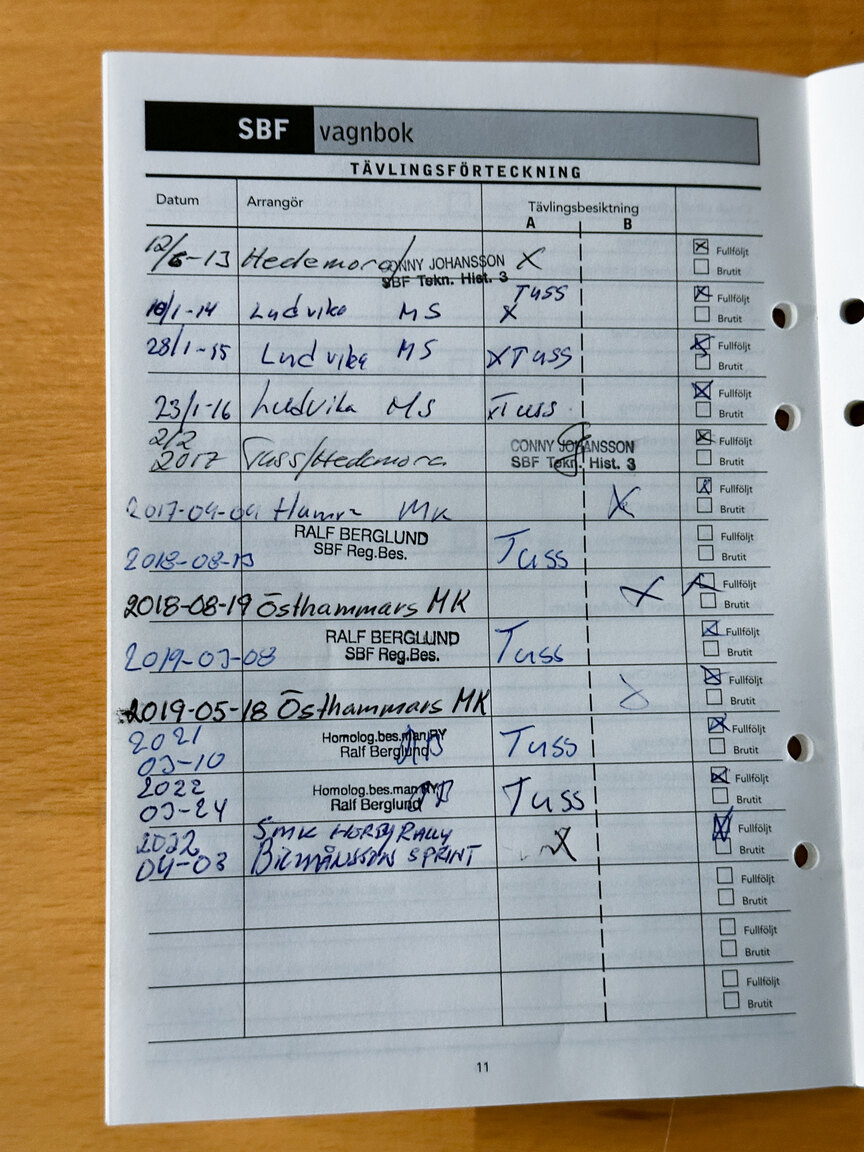 SBF vagnbok
TÄVLINGSFÖRTECKNING
Datum Arrangör Tävlingsbesiktning
A B
12/6-13 Hedemora/ CONNY JOHANSSON X Fullföljt
SBF Tekn. Hist. 3 Brutit
10/1-14 Ludvika MS X Tuss Fullföljt
Brutit
28/1-15 Ludvika MS X Tuss Fullföljt
Brutit
23/1-16 Ludvika MS X Tuss Fullföljt
Brutit
2/2 CONNY JOHANSSON Fullföljt
2017 Tuss/Hedemora SBF Tekn. Hist. 3 Brutit
2017-09-09 MK X Fullföljt
Brutit
RALF BERGLUND Fullföljt
2018-08-13 SBF Reg.Bes. Tuss Brutit
2018-08-19 Östhammars MK X Fullföljt
Brutit
RALF BERGLUND Fullföljt
2019-03-08 SBF Reg.Bes. Tuss Brutit
2019-05-18 Östhammars MK X Fullföljt
Brutit
2021 Homolog.bes.man RY Tuss Fullföljt
03-10 Ralf Berglund Brutit
2022 Homolog.bes.man RY Tuss Fullföljt
03-24 Ralf Berglund Brutit
2022 SMK HÖRBY RALLY X Fullföljt
04-03 SPRINT Brutit
Fullföljt
Brutit
Fullföljt
Brutit
Fullföljt
Brutit
11